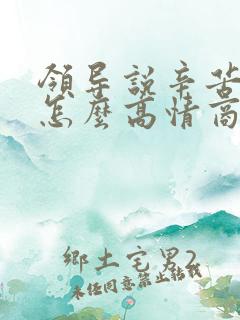 領导説辛苦
怎麽高情商
鄉土宅男2
未经同意禁止转载